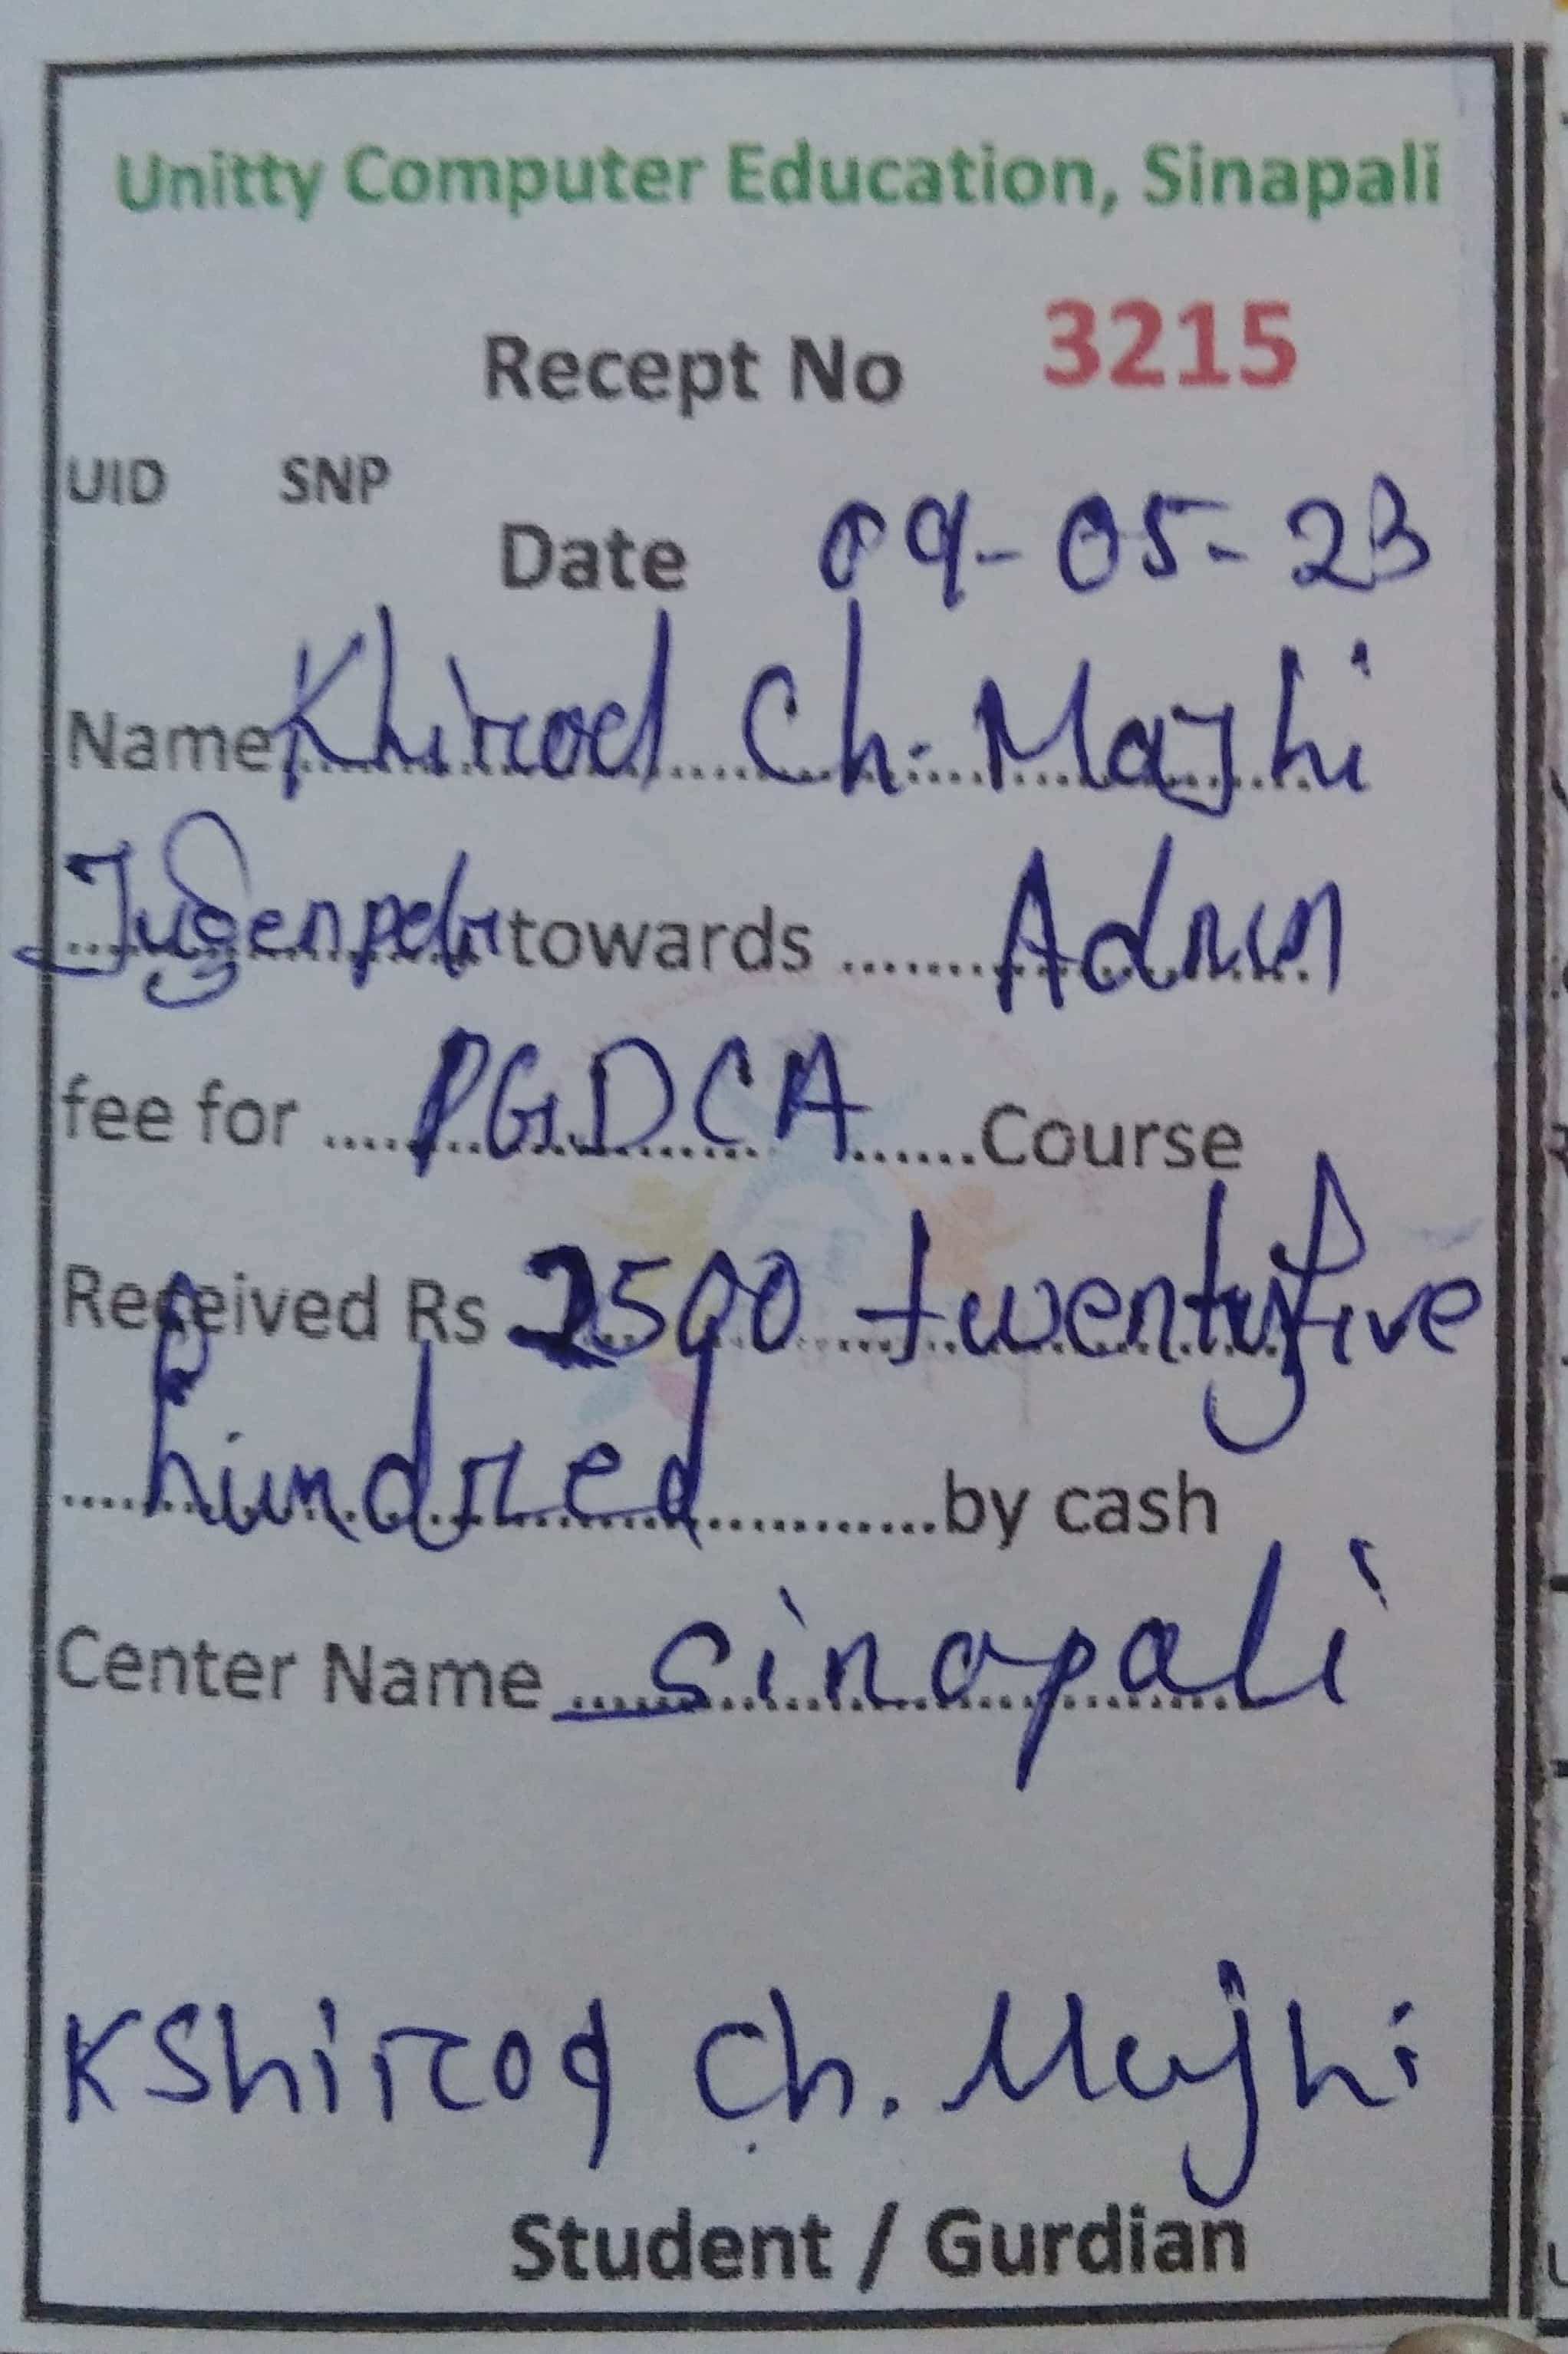 Unitty Computer Education, Sinapali
Recept No 3215
UID SNP
Date 09-05-23
Name Khirod Ch. Majhi
towards ....... Admn
fee for .... PGDCA ......Course
Received Rs 2500 twentyfive
hundred ..........by cash
Center Name Sinapali
Kshirod Ch. Majhi
Student / Gurdian